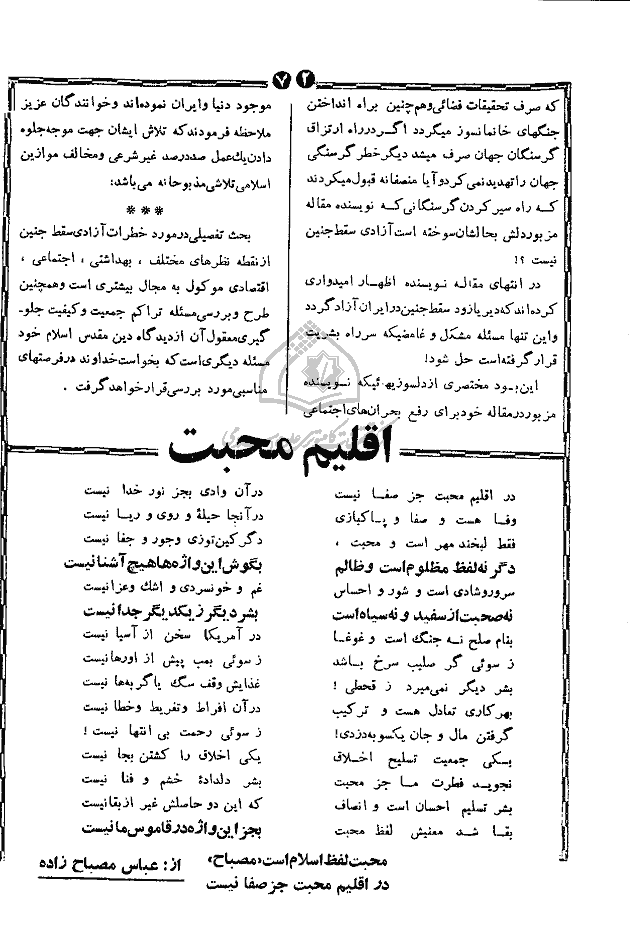 ۷۲
که صرف تحقیقات فضائی وهم‌چنین براه انداختن
جنگهای خانمانسوز میگردد اگردرراه ارتزاق
گرسنگان جهان صرف میشد دیگر خطر گرسنگی
جهان را تهدید نمی‌کرد و آیا منصفانه قبول میکردند
کـه راه سیر کردن گرسنگانی کـه نویسنده مقاله
مزبور دلش بحالشان سوخته است آزادی سقط جنین
نیست ؟!
در انتهای مقـاله نویسنده اظهـار امیدواری
کرده‌اند که دیر یازود سقط جنین در ایران آزاد گردد
واین تنها مسئله مشکل و غامضیکه سرراه بشریت
قرار گرفته است حل شود!
این بـود مختصری از دلسوزیهائیکه نـویسنده
مزبور در مقاله خود برای رفع بحران‌های اجتماعی
موجود دنیا وایران نموده‌اند وخوانندگان عزیز
ملاحظه فرمودند که تلاش ایشان جهت موجه جلوه
دادن یك عمل صددرصد غیر شرعی ومخالف موازین
اسلامی تلاشی مذبوحانه می‌باشد:
***
بحث تفصیلی در مورد خطرات آزادی سقط جنین
از نقطه نظرهای مختلف ، بهداشتی ، اجتماعی ،
اقتصادی موکول به مجال بیشتری است وهمچنین
طرح و بررسی مسئله تراکم جمعیت و کیفیت جلو-
گیری معقول آن از دیدگاه دین مقدس اسلام خود
مسئله دیگری است که بخواست خداوند در فرصتهای
مناسبی مورد بررسی قرار خواهد گرفت .
اقلیم محبت
در اقلیم محبت جز صفـا نیست درآن وادی بجز نور خدا نیست
وفـا هست و صفا و پـاکبازی درآنجا حیلهٔ و روی و ریـا نیست
فقط لبخند مهر است و محبت ، دگر کین‌توزی وجور و جفا نیست
دگر نه لفظ مظلوم است و ظالم بگوش این واژه‌ها هیچ آشنا نیست
سرور و شادی است و شور و احساس غم و خونسردی و اشك وعزا نیست
نه صحبت از سفید و نه سیاه است بشر دیگر ز یکدیگر جدا نیست
بنام صلح نـه جنگ است و غوغـا در آمریکـا سخن از آسیا نیست
ز سوئی گر صلیب سرخ بـاشد ز سوئی بمب پیش از اورها نیست
بشر دیگر نمی‌میرد ز قحطی ! غذایش وقف سگ یا گربه‌ها نیست
بهر کاری تعادل هست و ترکیب درآن افراط وتفریط وخطا نیست
گرفتن مال و جان یکسو به‌دزدی! ز سوئی رحمت بی انتها نیست !
یـکی جمعیت تسلیح اخـلاق یکی اخلاق را کشتن بجا نیست
نجویـد فطرت مـا جز محبت بشر دلدادهٔ خشم و فنا نیست
بشر تسلیم احسان است و انصاف که این دو حاصلش غیر از بقا نیست
بقـا شـد معنیش لفظ محبت بجز این واژه در قاموس ما نیست
محبت لفظ اسلام است «مصباح»
در اقلیم محبت جز صفا نیست
از : عباس مصباح زاده